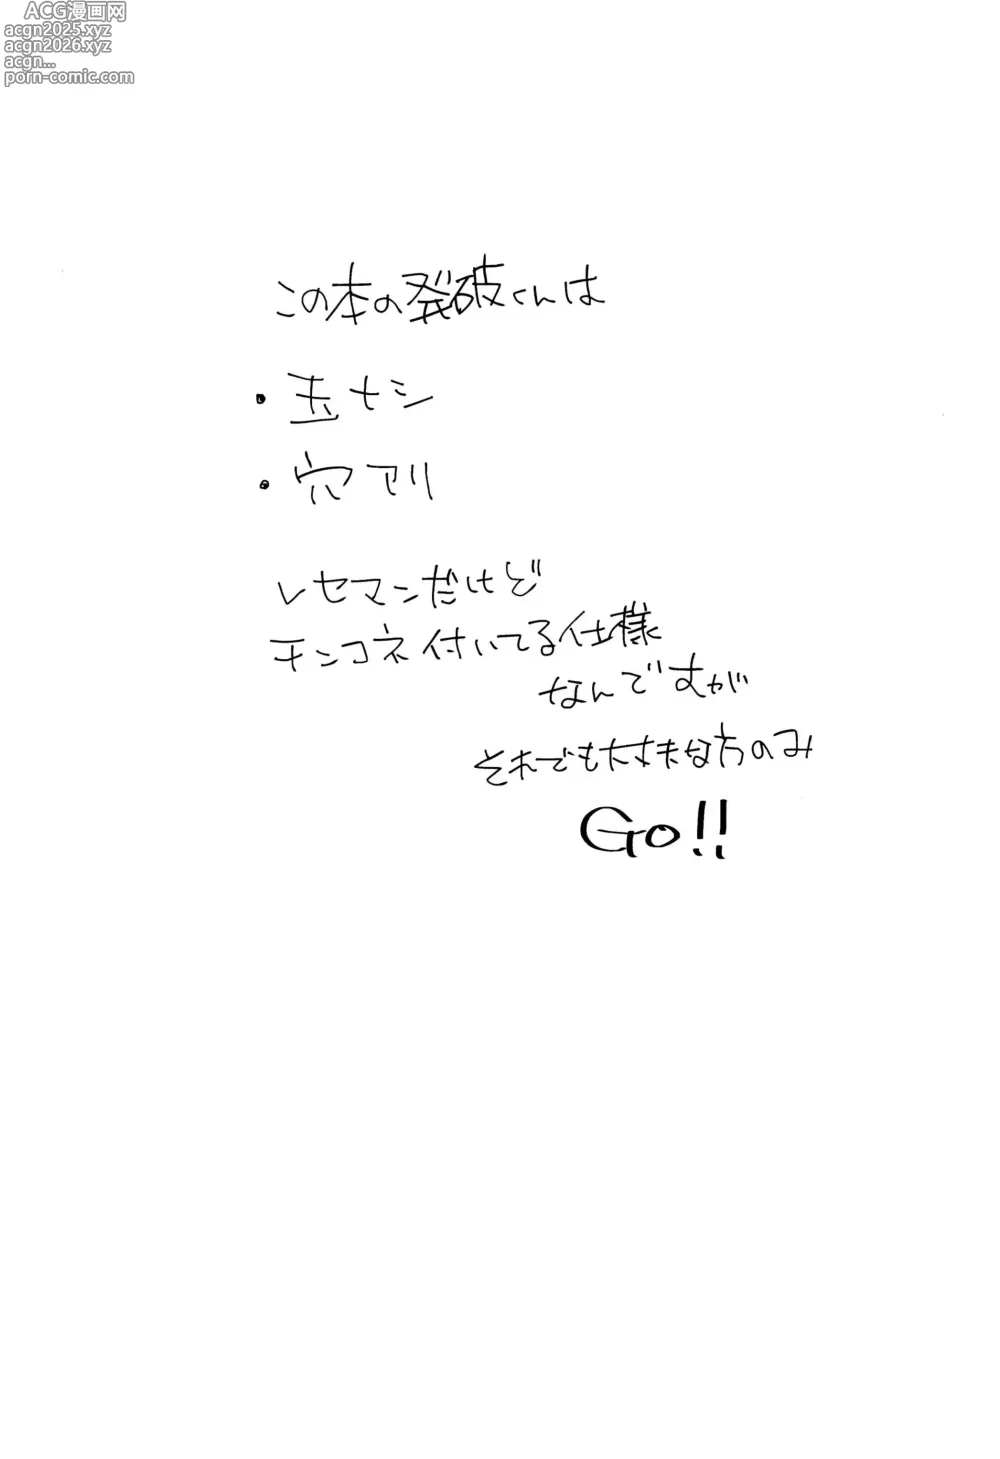 ACG漫画网
acgn2025.xyz
acgn2026.xyz
acgn...
porn-comic.com
この本の裂破くんは
・玉ナシ
・穴アリ
レセマンだけど
チンコネ付いてる仕様
なんですが
それでも大丈夫な方のみ
Go!!